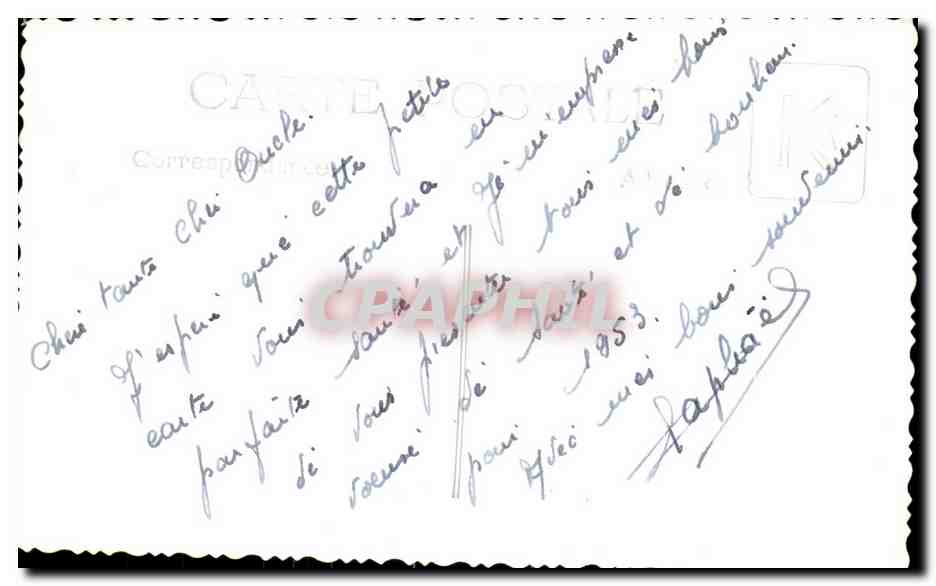 CARTE POSTALE
Correspondance
Cheri tante cheri Oncle.
J'esperi que cetté petite
carte vous trouvera en
parfaite santé et Je m'empresse
de vous presenter tous mes bons
voeux de santé et de bonheur.
pour 1953.
Avec mes bons souvenirs.
Raphaël
CPAPHIL